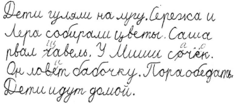 Дети гуляли на лугу. Сережка и
Лера собирали цветы. Саша
рвал хавель. У Миши сочек.
Он ловет бабочку. Пораобедать.
Дети идут домой.